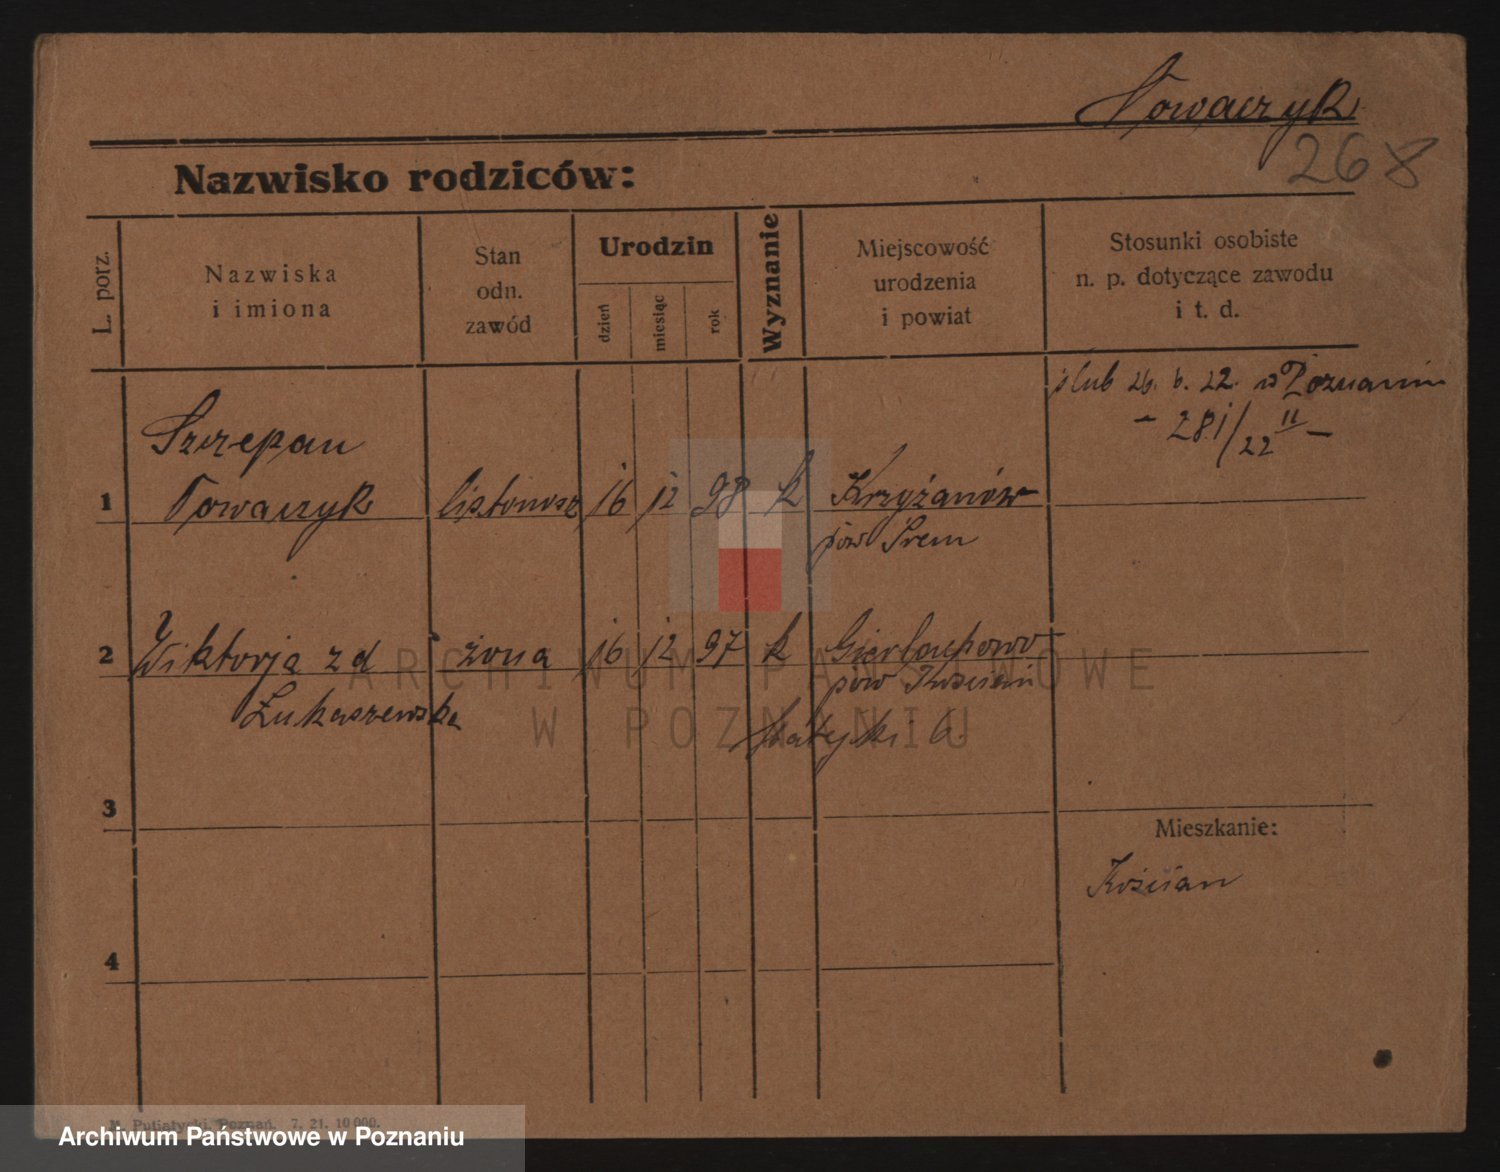 Nowaczyk
268
Nazwisko rodziców:
L. porz.
Nazwiska
i imiona
Stan
odn.
zawód
Urodzin
dzień
miesiąc
rok
Wyznanie
Miejscowość
urodzenia
i powiat
Stosunki osobiste
n. p. dotyczące zawodu
i t. d.
ślub 26. 6. 22. w Poznaniu
- 281/22 II -
1 Szczepan
Nowaczyk listonosz 16 12 98 k Krzyżanów
pow Śrem
2 Wiktorja z d żona 16 12 97 k Gierłachowo
Łukaszewska
pow Kościan
3
Mieszkanie:
Kościan
4
ARCHIWUM PAŃSTWOWE
W POZNANIU
Putiatycki, Poznań. 7. 21. 10 000.
Archiwum Państwowe w Poznaniu